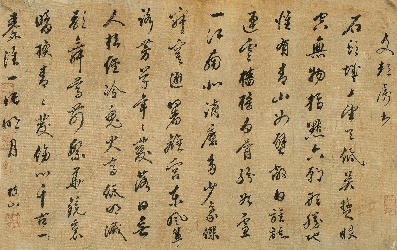 石頭城上望天低吳楚眼
空無物指點六朝形勝地
惟有青山如壁蔽日旌旗
連雲檣櫓白骨紛如雪
一江南北消磨多少豪傑
寂寞避暑離宮東風輦
路芳草年〻發落日無
人松徑冷鬼火高低明滅
歌舞尊前繁華鏡裏
暗換青〻髮傷心千古
秦淮一片明月